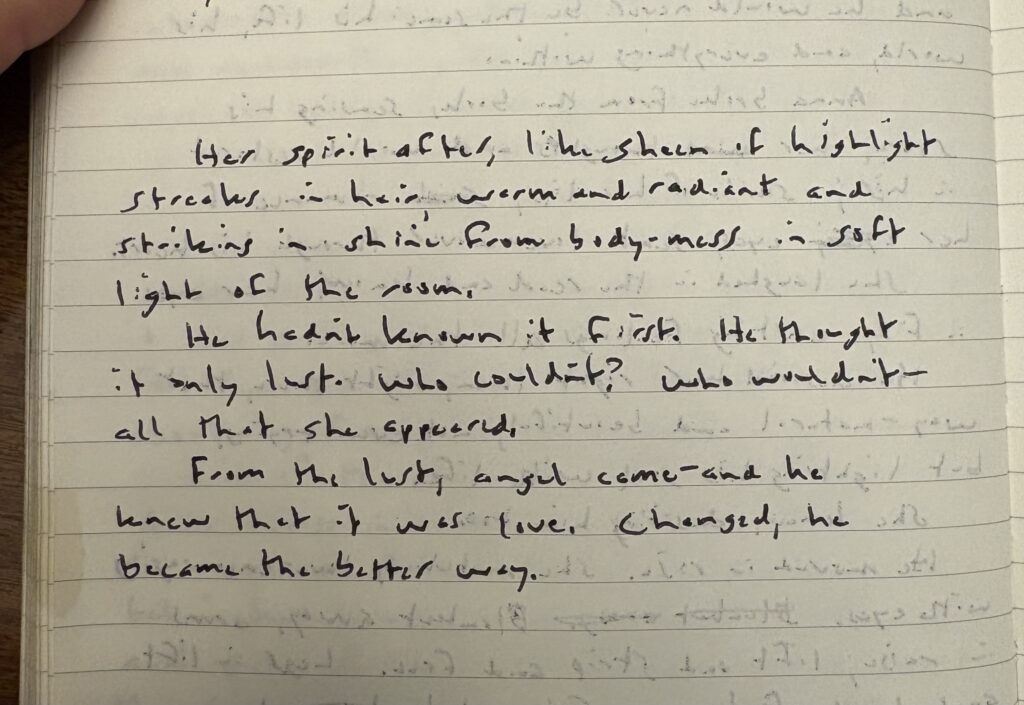 Her spirit after, like sheen of highlight
streaks in hair, warm and radiant and
striking in shine from body-mess in soft
light of the room.
He hadn't known it first. He thought
it only lust. Who couldn't? Who wouldn't—
all that she appeared.
From the lust, angel came—and he
knew that it was love. Changed, he
became the better way.